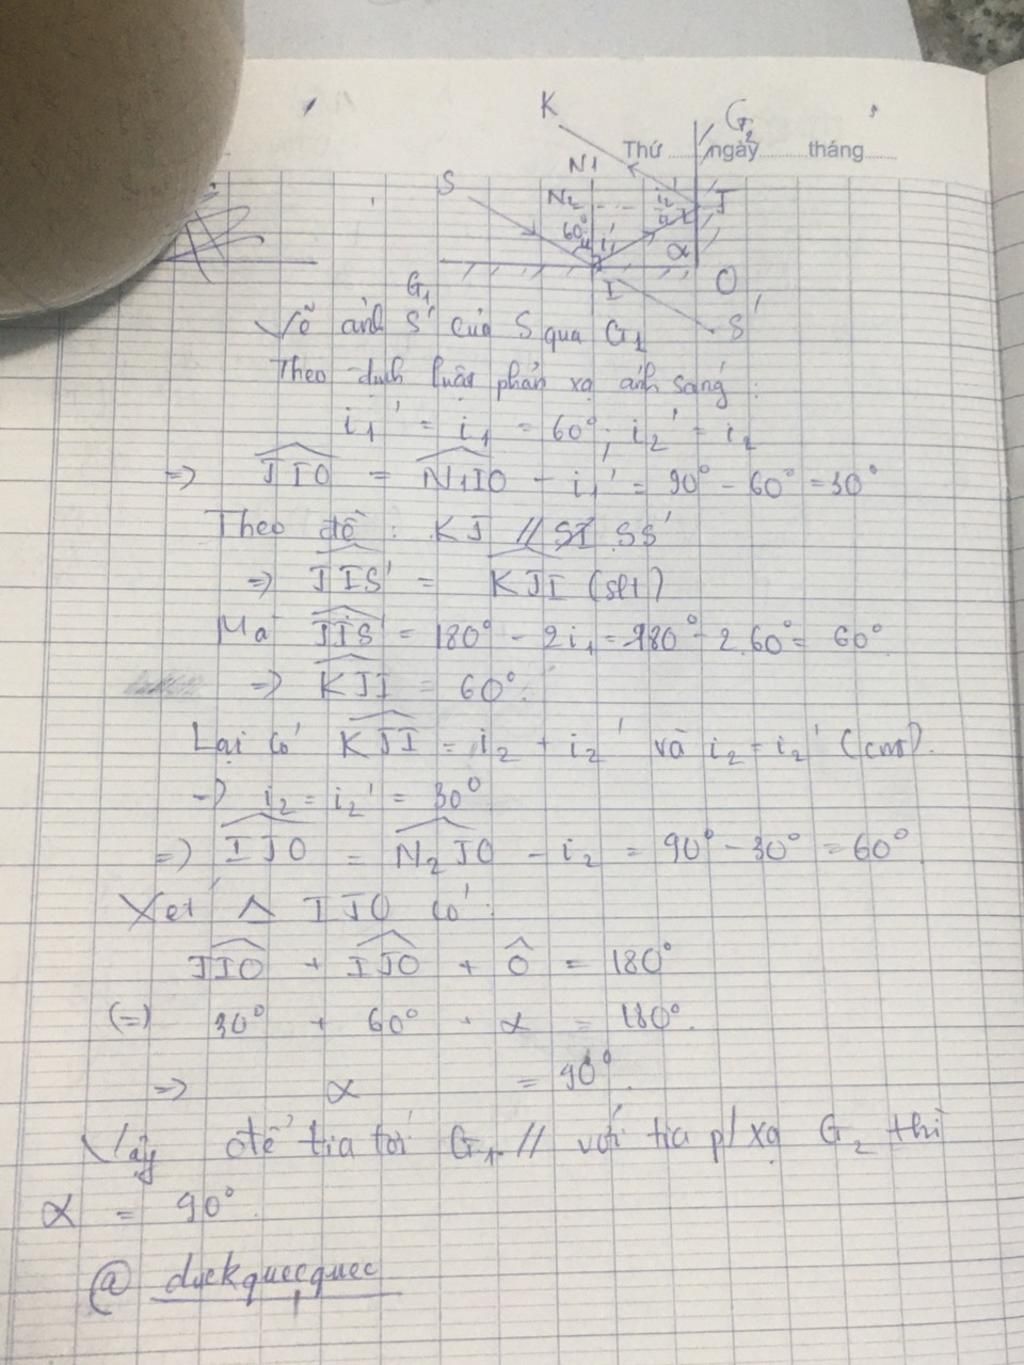 K
G₂
Thứ ngày tháng
N1
S
N₂
i₂'
J
60°
i₁'
α
I
O
G₁
S'
Vẽ ảnh S' của S qua G₁
Theo định luật phản xạ ánh sáng :
i₁' = i₁ = 60° ; i₂' = i₂
=> JIO = N₁IO - i₁' = 90° - 60° = 30°
Theo đề : KJ // SS'
=> JIS' = KJI (slt)
Mà JIS' = 180° - 2i₁ = 180° - 2.60° = 60°
=> KJI = 60°.
Lại có KJI = i₂ + i₂' và i₂ = i₂' (cmt).
-> i₂ = i₂' = 30°
=> IJO = N₂JO - i₂ = 90° - 30° = 60°
Xét Δ IJO có :
JIO + IJO + Ô = 180°
(=) 30° + 60° + α = 180°.
=> α = 90°.
Vậy để tia tới G₁ // với tia p/xạ G₂ thì
α = 90°.
@ duckquecquec